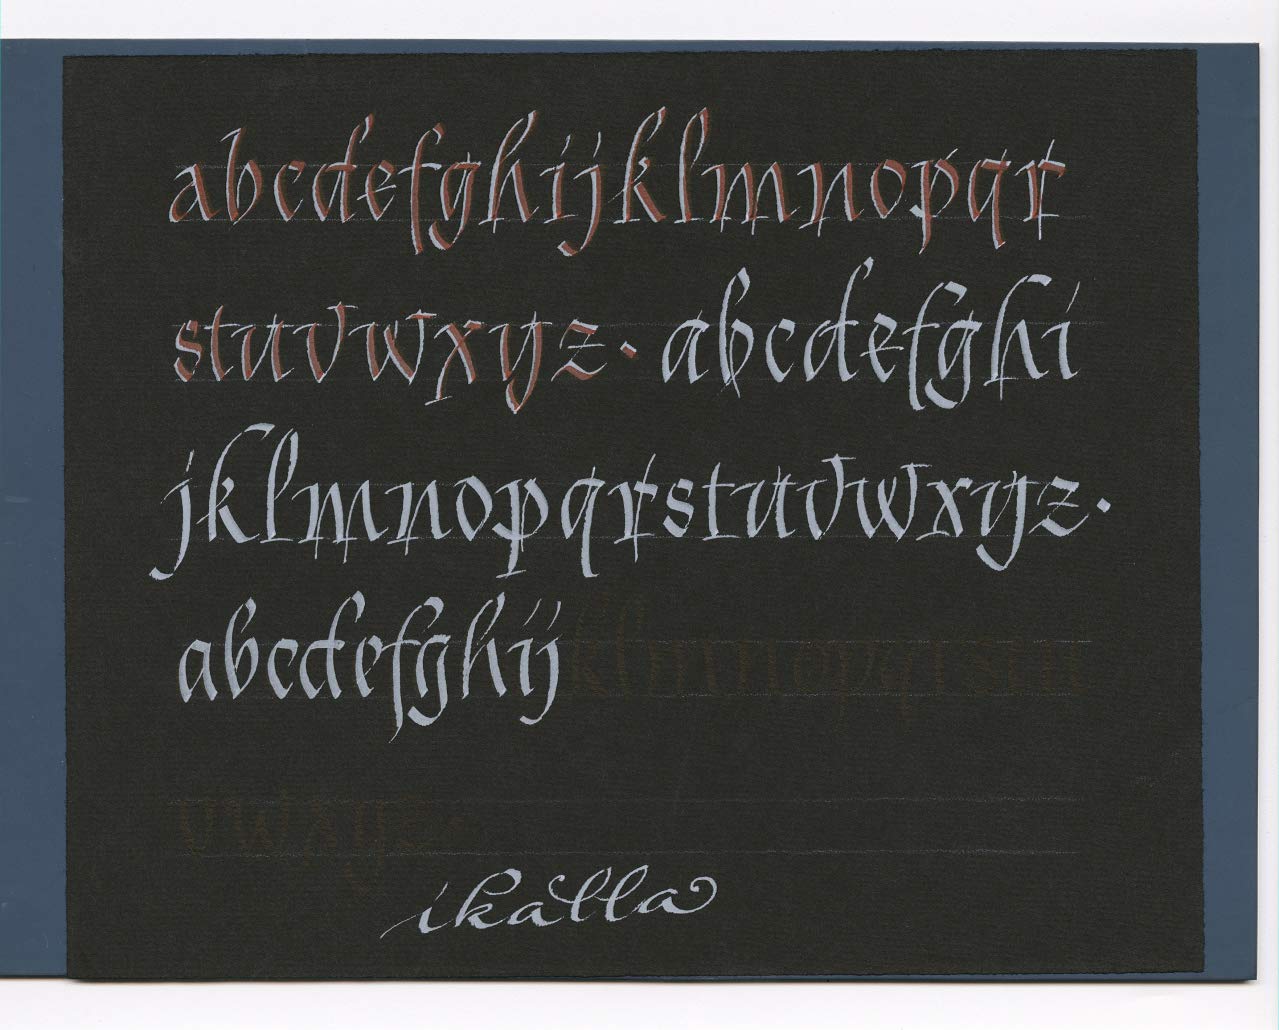 abcdefghijklmnopqr
stuvwxyz· abcdefghi
jklmnopqrstuvwxyz·
abcdefghijklmnopqrstu
vwxyz·
ikalla